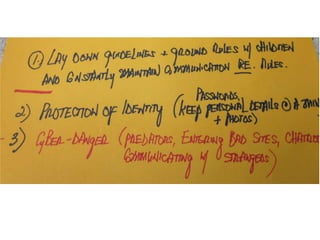 1. LAY DOWN GUIDELINES + GROUND RULES W/ CHILDREN
AND CONSTANTLY MAINTAIN COMMUNICATION RE. RULES.
PASSWORDS,
2) PROTECTION OF IDENTITY (KEEP PERSONAL DETAILS @ A
+ PHOTOS)
- 3) CYBER-DANGER (PREDATORS, ENTERING BAD SITES,
COMMUNICATING W/ STRANGERS)